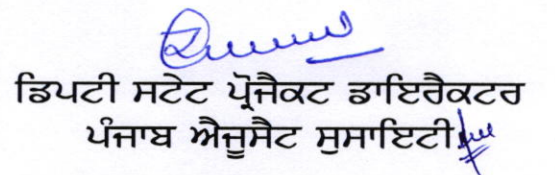 ਡਿਪਟੀ ਸਟੇਟ ਪ੍ਰੋਜੈਕਟ ਡਾਇਰੈਕਟਰ
ਪੰਜਾਬ ਐਜੂਸੈਟ ਸੁਸਾਇਟੀ.